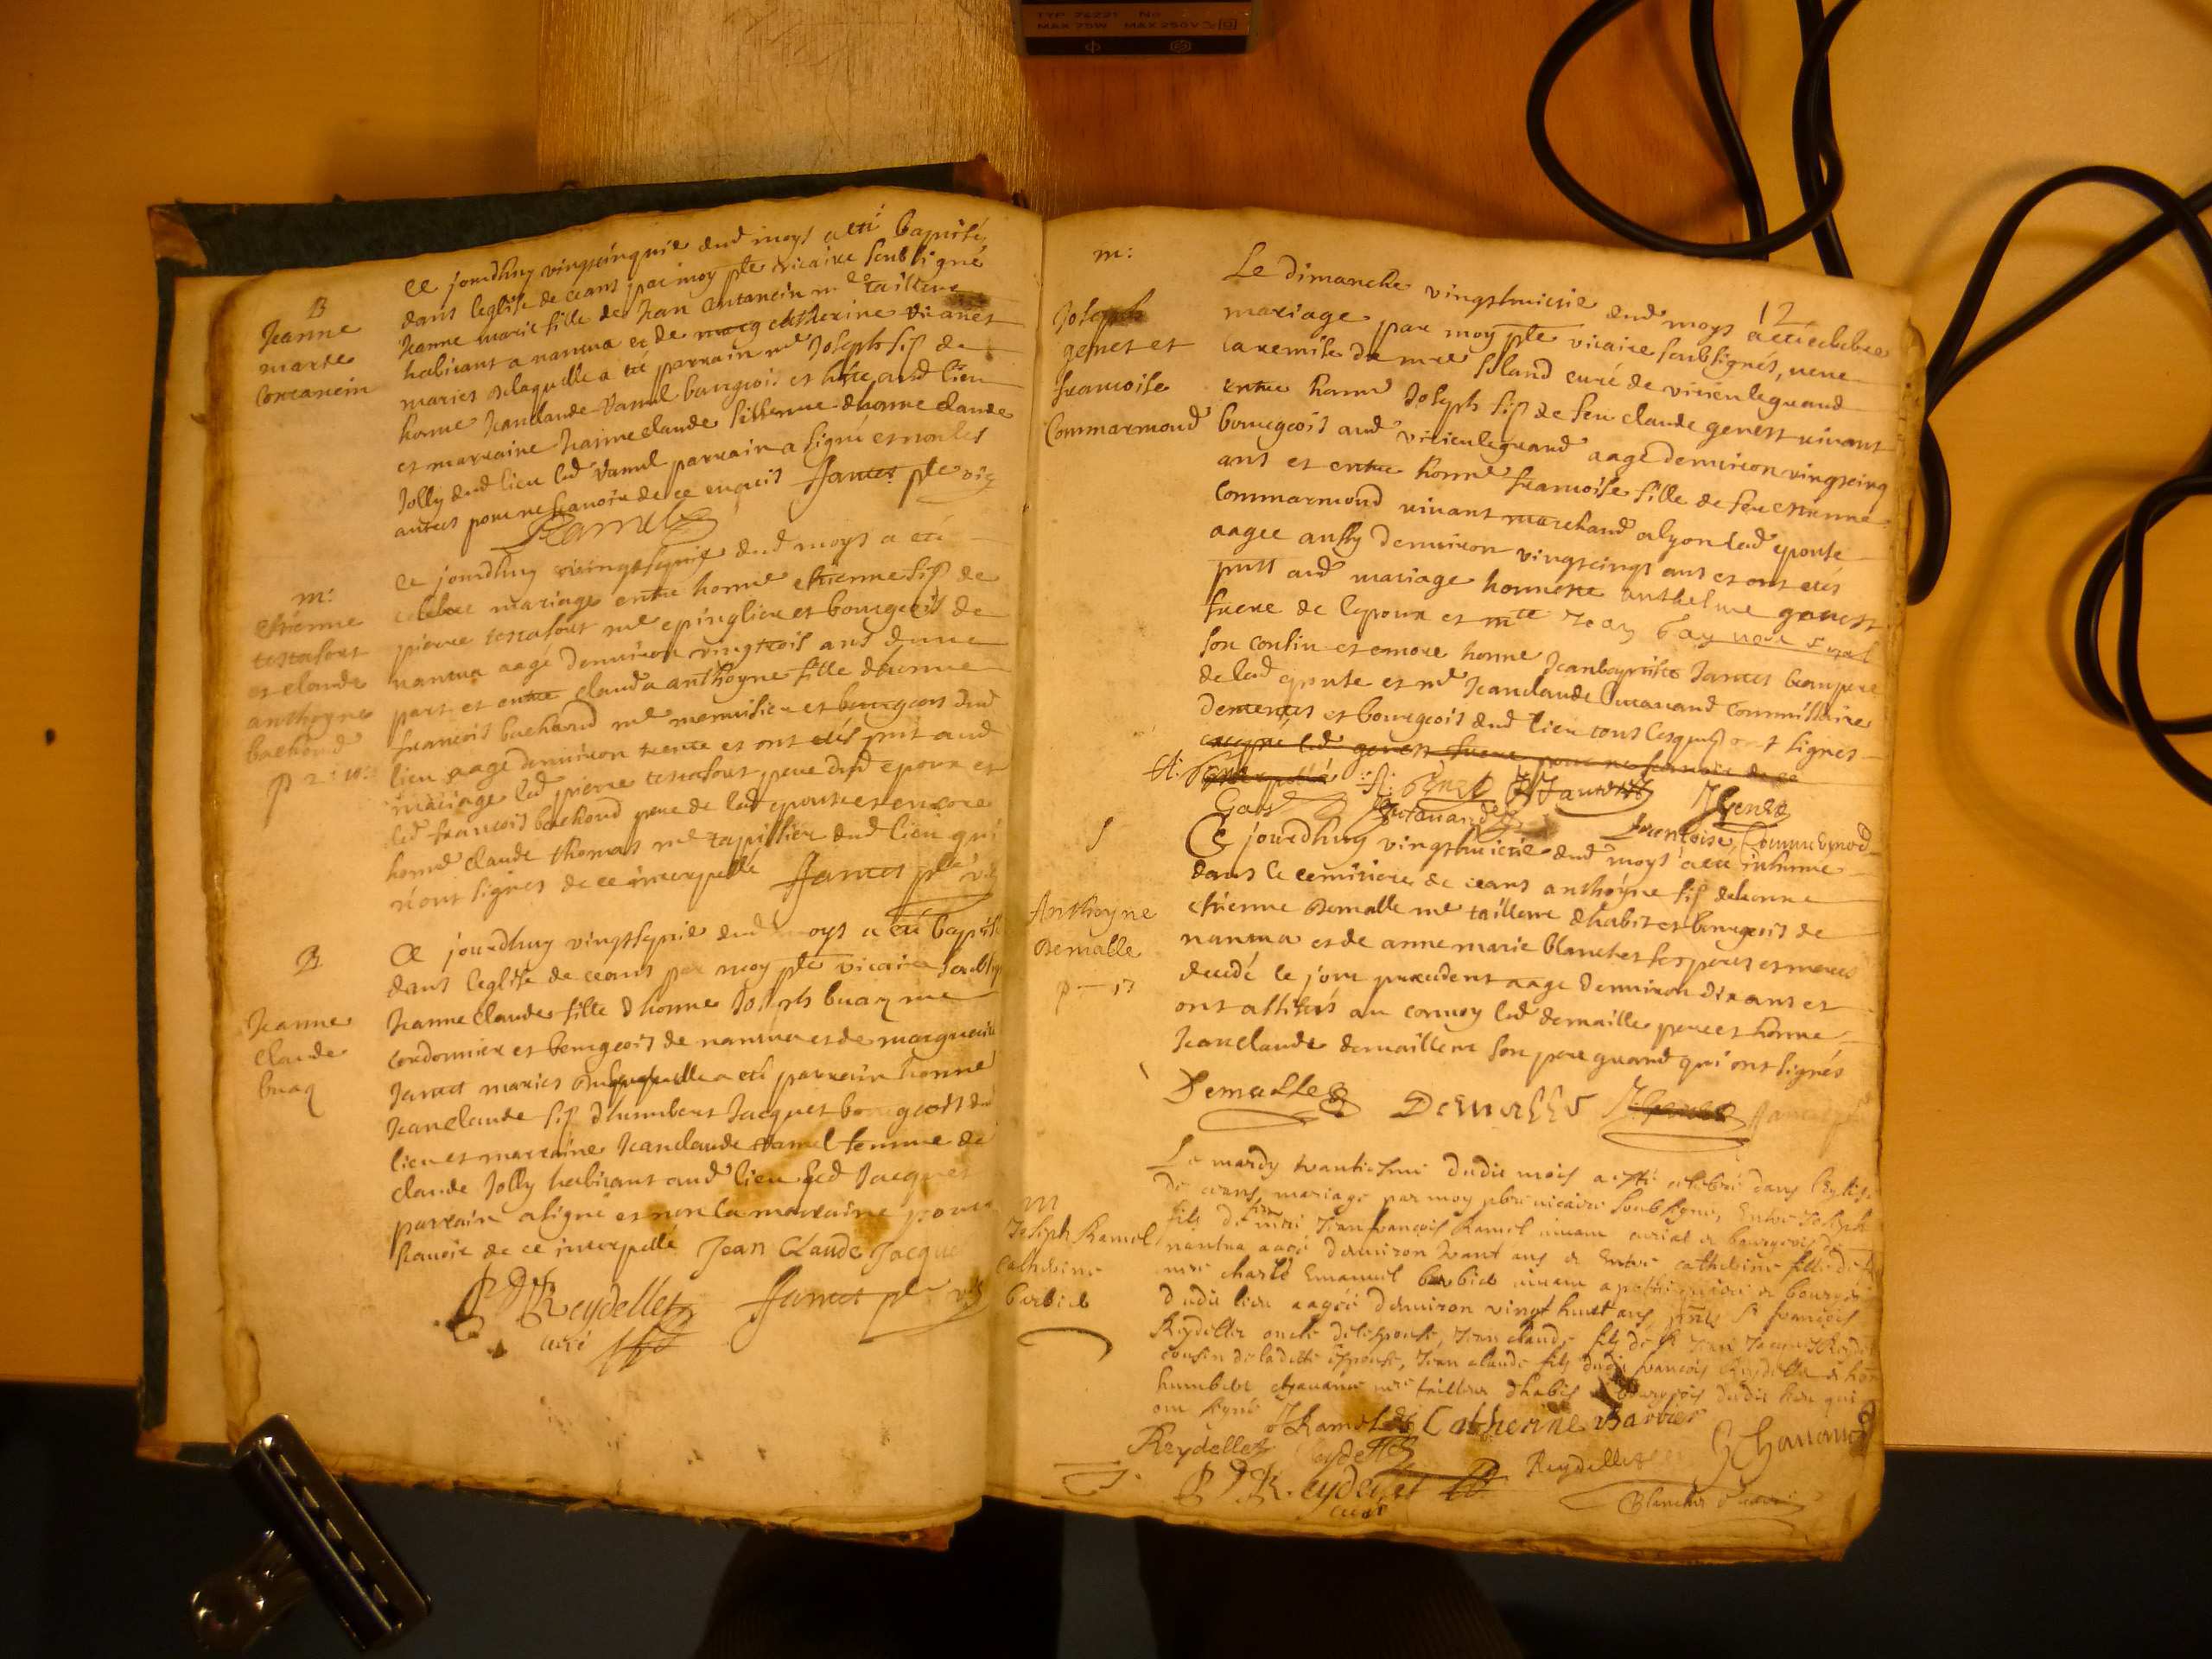 TYP 76221 No
MAX 70W MAX 250V
B
Jeanne
marie
Contancin
Ce jourdhuy vingtcinquie dud moys a eté baptisée
dans leglise de ceans par moy pbre vicaire soubsigné
Jeanne marie fille de Jean Contancin me tailleur
habitant a nantua et de marg catherine
maries de laquelle a eté parrain me Joseph fils de
honne Jeanclaude Ramel bourgeois et hoste aud lieu
et marraine Jeanneclaude fille dhonne claude
Jolly dud lieu led Ramel parrain a signé et non les
autres pour ne scavoir de ce enquis Jantet pbre vic
Ramel
m:
etienne
testafort
et claude
anthoyne
bachoud
Ce jourdhuy vingtseptie dud moys a eté
celebré mariage entre honne etienne fils de
pierre testafort me epinglier et bourgeois de
nantua aagé denviron vingttrois ans dune
part et entre clauda anthoyne fille dhonne
francois bachoud me menuisier et bourgeois dud
lieu aagé denviron trente et ont etés pnt aud
mariage led pierre testafort pere dud epoux et
led francois bachoud pere de lad epouse et encore
honne claude thomas me tapissier dud lieu qui
n'ont signés de ce interpellé Jantet pbre vic
B
Jeanne
claude
buaz
Ce jourdhuy vingtseptie dud moys a eté baptisée
dans leglise de ceans par moy pbre vicaire soubsig
Jeanne claude fille dhonne Joseph buaz me
cordonnier et bourgeois de nantua et de marguerite
Jantet maries de laquelle a eté parrain honne
Jeanclaude fils dhumbert Jacquet bourgeois dud
lieu et marraine Jeanclaude Ramel femme de
claude Jolly habitant aud lieu led Jacquet
parrain a signé et non la marraine pour
scavoir de ce interpellé Jean Claude Jacque
Reydellet Jantet pbre vic
curé
12
m:
Joseph
genest et
francoise
Commarmond
Le dimanche vingthuitie dud moys a eté celebré
mariage par moy pbre vicaire soubsignés, veue
la remise de mre curé de virieulegrand
entre honne Joseph fils de feu claude genest vivant
bourgeois aud virieulegrand aagé denviron vingtcinq
ans et entre honne francoise fille de feu etienne
Commarmond vivant marchand a lyon lad epouse
aagee aussy denviron vingtcinqt ans et ont etés
pntt aud mariage honneste anthelme genest
frere de lepoux et mtre
son cousin et encore honne Jeanbaptiste Jantet beaupere
de lad epouse et me Jeanclaude commissaire
et bourgeois dud lieu tous lesquels ont signés
excepté led genest frere pour ne scavoir de ce
Jantet JGenest
francoise Commarmond
S
Anthoyne
Demalle
Ce jourdhuy vingthuitie dud moys a eté inhumé
dans le cemitiere de ceans anthoyne fils dehonne
etienne Demalle me tailleur dhabit et bourgeois de
nantua et de anne marie blanchet ses peres et meres
decedé le jour precedent aagé denviron dix ans et
ont assistés au convoy led demaille pere et honne
Jeanclaude demaillere son pere grand qui ont signés
Demalle Demalle
m
Joseph Ramel
Catherine
barbier
Le mardy trantiesme dudit mois a esté celebré dans leglise
de ceans mariage par moy pbre vicaire soubsigné, Entre Joseph
fils de mre Jeanfrancois Ramel vivant curial et bourgeois de
nantua aagé denviron trant ans et Entre catherine fille de
mre charle Emanuel barbier vivant et bourgeois
dudit lieu aagée denviron vingt huit ans pnts Sr francois
Reydellet oncle de lespouse, Jean claude fils de Sr Jean Jacques Reyde
cousin de ladite espouse, Jean claude fils dudit francois Reydellet et hon
humbert chavanne mre tailleur dhabis et bourgeois dudit lieu qui
ont signé JRamel Catherine Barbier
Reydellet Reydellet Reydellet
Reydellet
curé